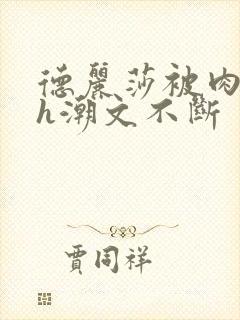 德麗莎被肉
h潮文不斷
賈同祥